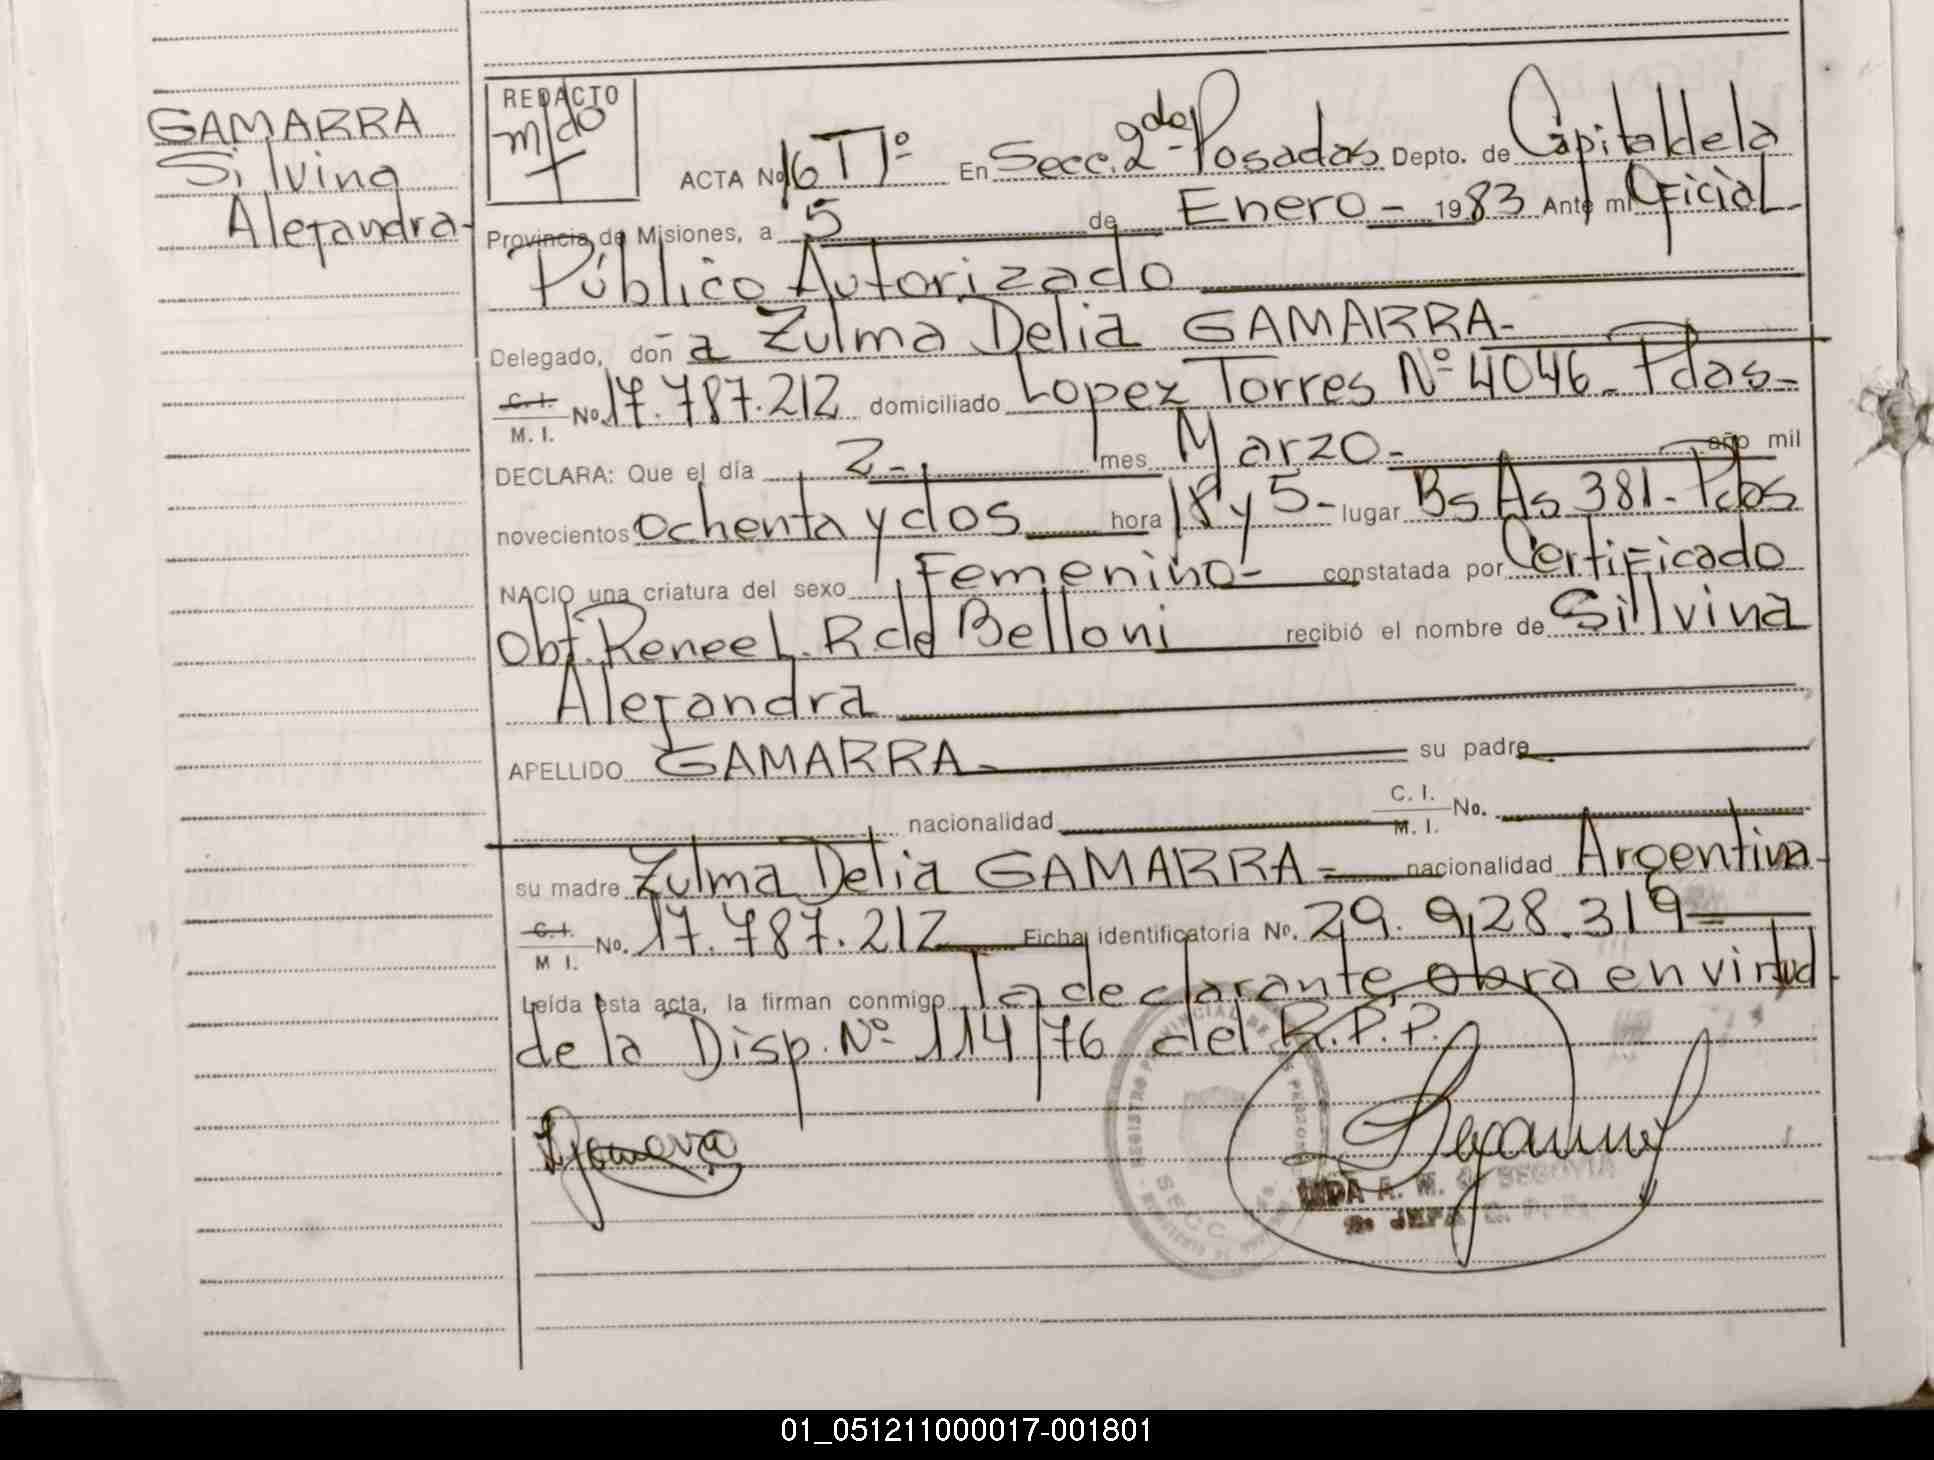 GAMARRA
Silvina
Alejandra-
REDACTO
m/do
ACTA No 16 Tº 1º En Secc. 2da - Posadas Depto. de Capital de la
Provincia de Misiones, a 5 de Enero - 1983 Ante mi Oficial
Público Autorizado
Delegado, doña Zulma Delia GAMARRA-
C. I.
M. I. No. 17.787.212 domiciliado Lopez Torres Nº 4046 - Pdas-
DECLARA: Que el día 2- mes Marzo- año mil
novecientos ochenta y dos hora 18 y 5- lugar Bs As 381- Pdas
NACIO una criatura del sexo Femenino- constatada por Certificado
Obt. Renee L. R. de Belloni recibió el nombre de Sillvina
Alejandra
APELLIDO GAMARRA- su padre
nacionalidad C. I. M. I. No.
su madre Zulma Delia GAMARRA- nacionalidad Argentina-
C. I.
M I. No. 17.787.212 Ficha identificatoria No. 29.928.319
Leída esta acta, la firman conmigo la declarante, obra en virtud
de la Disp. Nº 114/76 del R.P.P.
REGISTRO PROVINCIAL DE LAS PERSONAS
SECC.
A. M. SEGOVIA
JEFA
01_051211000017-001801